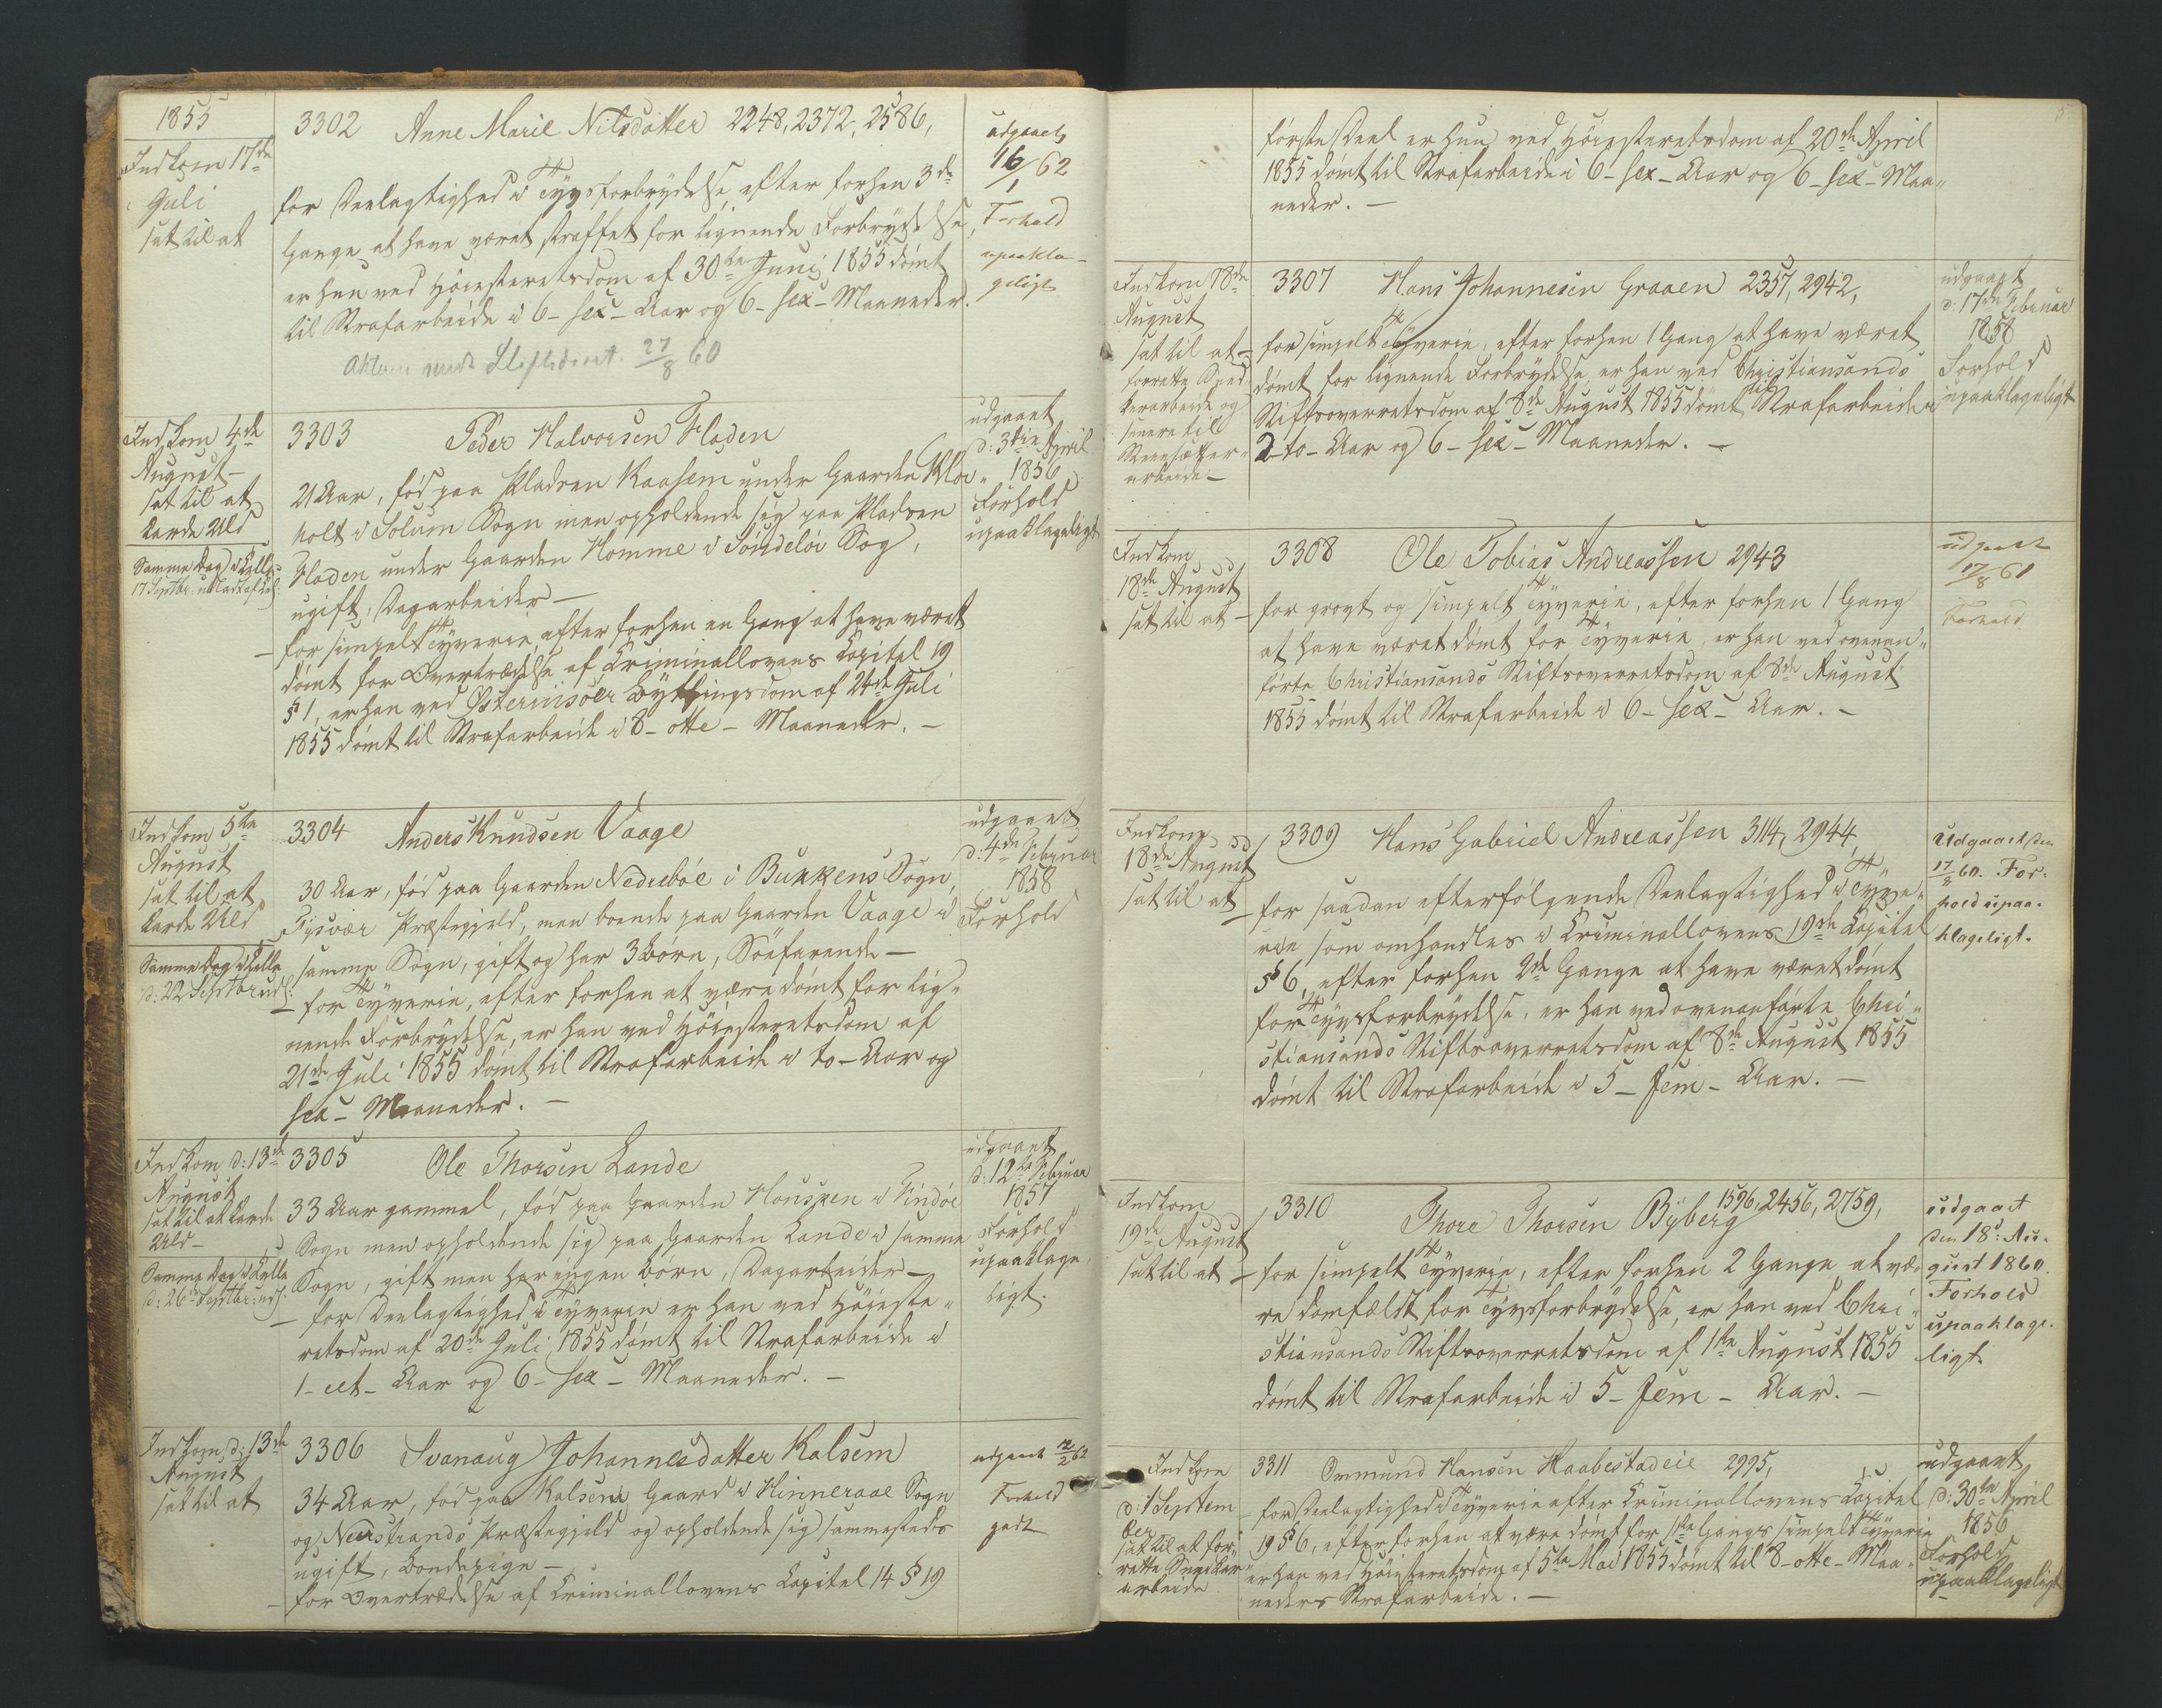 1855
Indkom 17de
Juli
sat til at
3302 Anne Marie Nilsdatter 2248, 2372, 2586,
for Deelagtighed i Tyvsforbrydelse, efter forhen 3de
Gange at have været straffet for lignende Forbrydelse,
er hun ved Høiesteretsdom af 30te Juni 1855 dømt
til Strafarbeide i 6 - sex - Aar og 6 - sex - Maaneder.
27/8 60
udgaaet
16/1 62
Forhold
upaakla-
geligt
Indkom 4de
August
sat til at
karde Uld
Samme Dag i Celle
3303 Peder Halvorsen Fladen
21 Aar, fød paa Pladsen Kaasem under Gaarden
holt i Solum Sogn men opholdende sig paa Pladsen
Fladen under Gaarden Homme i Søndeløv Sogn,
ugift, Dagarbeider -
- for simpelt Tyverie, efter forhen en Gang at have været
dømt for Overtrædelse af Criminallovens Capitel 19
§ 1, er han ved Østerriisøers Bythingsdom af 24de Juli
1855 dømt til Strafarbeide i 8 - otte - Maaneder. -
udgaaet
d: 3die April
1856
Forhold
upaaklageligt
Indkom 5te
August
sat til at
karde Uld
Samme Dag i Celle
d: 22 Septbr: ud
3304 Anders Knudsen Vaage
30 Aar, fød paa Gaarden Nedrebøe i Bukkens Sogn,
Tysvær Præstegjeld, men boende paa Gaarden Vaage i
samme Sogn, gift og har 3 Børn, Søefarende -
- for Tyverie, efter forhen at være dømt for lig-
nende Forbrydelse, er han ved Høiesteretsdom af
21de Juli 1855 dømt til Strafarbeide i to - Aar og
sex - Maaneder. -
udgaaet
d: 4de Februar
1858
Forhold
Indkom d: 13de
August
sat til at karde
Uld -
Samme Dag i Celle
d: 26de Septbr: ud
3305 Ole Thorsen Lande
33 Aar gammel, fød paa Gaarden Houspen i Findøe
Sogn men opholdende sig paa Gaarden Lande i samme
Sogn, gift men har ingen Børn, Dagarbeider -
- for Deelagtighed i Tyverie er han ved Høieste-
retsdom af 20de Juli 1855 dømt til Strafarbeide i
1 - eet - Aar og 6 - sex - Maaneder. -
udgaaet
d: 12te Februar
1857
Forhold
upaaklage
ligt.
Indkom d: 13de
August
sat til at
3306 Svanaug Johannesdatter Kalsem
34 Aar, fød paa Kalsem Gaard i Hinneraae Sogn
og Neerstrands Præstegjeld og opholdende sig sammesteds
ugift, Bondepige -
- for Overtrædelse af Criminallovens Capitel 14 § 19
udgaaet 12/2 62
Forhold
godt
5
første Deel er hun ved Høiesteretsdom af 20de April
1855 dømt til Strafarbeide i 6 - sex - Aar og 6 - sex - Maa-
neder. -
Indkom 18de
August
sat til at
forrette Sned-
kerarbeide og
senere til
arbeide -
3307 Hans Johannesen Graaen 2357, 2942,
- for simpelt Tyverie, efter forhen 1 Gang at have været
dømt for lignende Forbrydelse, er han ved Christiansands
Stiftsoverretsdom af 8de August 1855 dømt til Strafarbeide i
2 - to - Aar og 6 - sex - Maaneder. -
udgaaet
d: 17de Februar
1858
Forhold
upaaklageligt
Indkom
18de August
sat til at
3308 Ole Tobias Andreassen 2943
- for grovt og simpelt Tyverie, efter forhen 1 Gang
at have været dømt for Tyverie, er han ved ovenan-
førte Christiansands Stiftsoverretsdom af 8de August
1855 dømt til Strafarbeide i 6 - sex - Aar. -
udgaaet
17/8 61
Forhold
Indkom
18de August
sat til at
3309 Hans Gabriel Andreassen 3114, 2944,
- for saadan efterfølgende Deelagtighed i Tyve-
rie som omhandles i Criminallovens 19de Capitel
§ 6, efter forhen 2de Gange at have været dømt
for Tyvsforbrydelse, er han ved ovenanførte Chri-
stiansands Stiftsoverretsdom af 8de August 1855
dømt til Strafarbeide i 5 - fem - Aar. -
Udgaaet den
17/8 60. For-
hold upaa-
klageligt.
Indkom
19de August
sat til at
3310 Thore Thorsen Byberg 1596, 2456, 2759,
- for simpelt Tyverie, efter forhen 2 Gange at væ-
re domfældt for Tyvsforbrydelse, er han ved Chri-
stiansands Stiftsoverretsdom af 1ste August 1855
dømt til Strafarbeide i 5 - fem - Aar. -
udgaaet
den 18de Au-
gust 1860.
Forhold
upaaklage-
ligt.
Indkom
d: 1 Septem
ber
sat til at for-
rette Snedker
arbeide
3311 Ormund Hansen Haabestadeie 2995,
for Deelagtighed i Tyverie efter Criminallovens Capitel
19 § 6, efter forhen at være dømt for 1ste Gangs simpelt Tyverie
er han ved Høiesteretsdom af 5te Mai 1855 dømt til 8 - otte - Maa-
neders Strafarbeide. -
udgaaet
d: 30te April
1856
Forhold
upaaklageligt